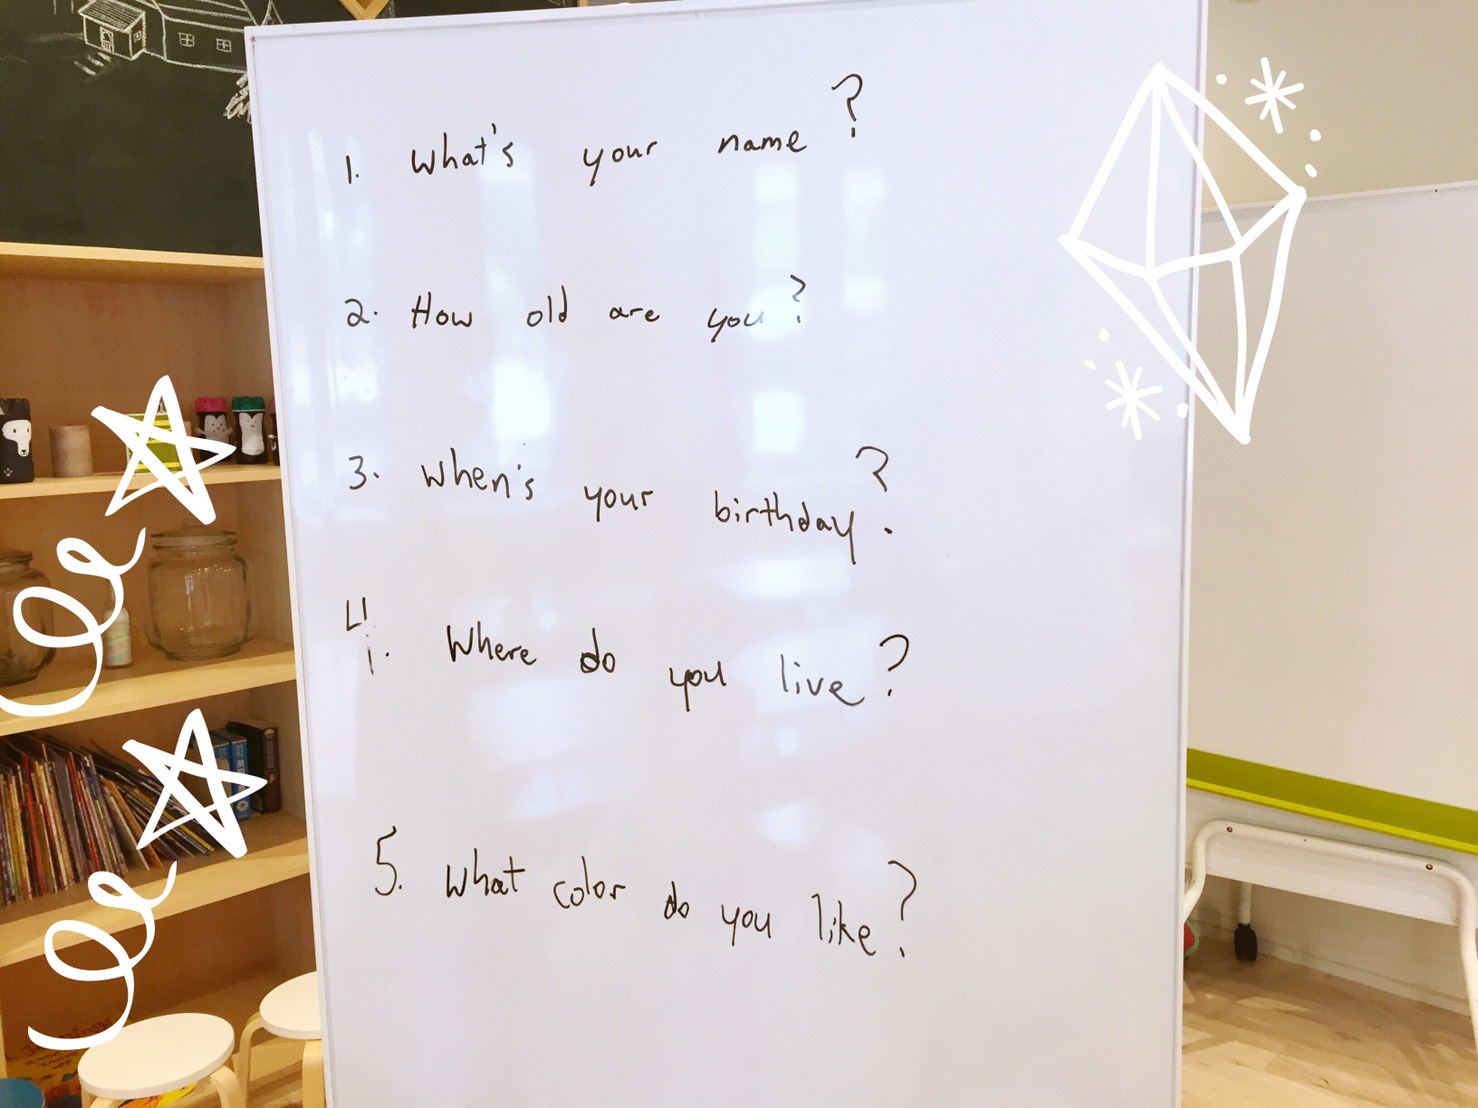 1. What's your name?
2. How old are you?
3. When's your birthday?
4. Where do you live?
5. What color do you like?